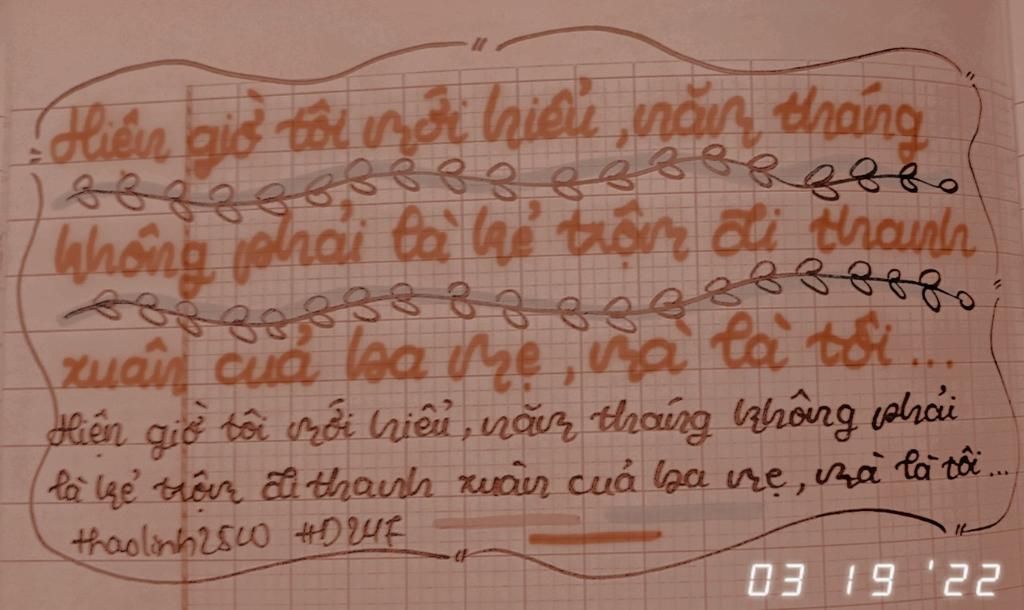 Hiện giờ tôi mới hiểu, năm tháng
không phải là kẻ trộm đi thanh
xuân cuả ba mẹ, mà là tôi...
Hiện giờ tôi mới hiểu, năm tháng không phải
là kẻ trộm đi thanh xuân cuả ba mẹ, mà là tôi...
03 19 '22